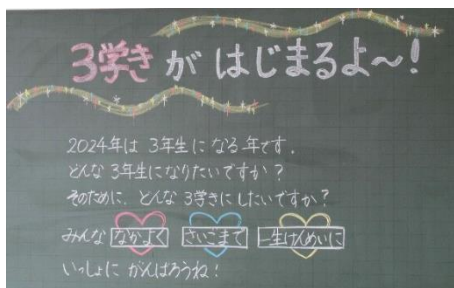 3学きがはじまるよ～!
2024年は 3年生に なる 年です。
どんな 3年生になりたいですか?
そのために、どんな 3学きにしたいですか?
みんな なかよく さいごまで 一生けんめいに
いっしょに がんばろうね!